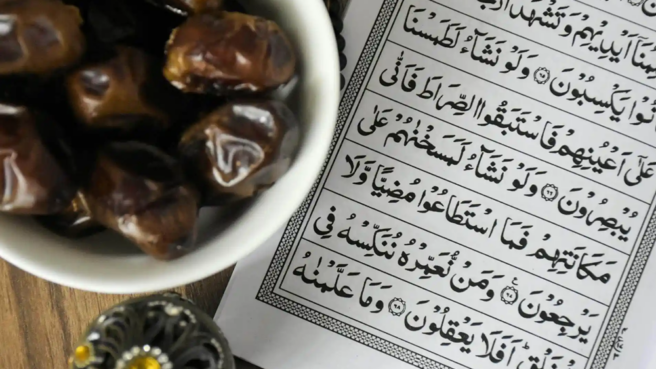 اَيْدِيْهِمْ وَتَشْهَدُ
يَكْسِبُوْنَ ﴿۶۵﴾ وَلَوْ نَشَآءُ لَطَمَسْنَا
عَلٰٓى اَعْيُنِهِمْ فَاسْتَبَقُوا الصِّرَاطَ فَاَنّٰى
يُبْصِرُوْنَ ﴿۶۶﴾ وَلَوْ نَشَآءُ لَمَسَخْنٰهُمْ عَلٰى
مَكَانَتِهِمْ فَمَا اسْتَطَاعُوْا مُضِيًّا وَّلَا
يَرْجِعُوْنَ ﴿۶۷﴾ وَمَنْ نُّعَمِّرْهُ نُنَكِّسْهُ فِى
اَفَلَا يَعْقِلُوْنَ ﴿۶۸﴾ وَمَا عَلَّمْنٰهُ